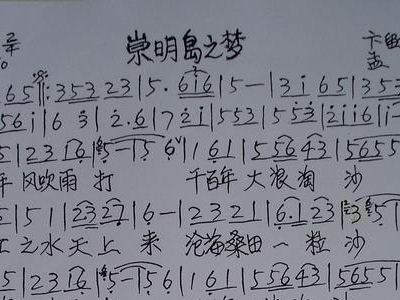 崇明岛之梦
65‖:353 23|5. 6i6|5-|3i 65|353
56i|6 3|2.6|72i|553|553|2ii6|i-
5|23 16|5-5 6|161|556 43|5655
年 风吹雨 打 千百年 大浪淘 沙
5|51|23 27|6-|23 21|6.1 23|
之水天上 来 沧海桑田 一粒 沙
5|23 16|5-5 6|161|556 43|5655|